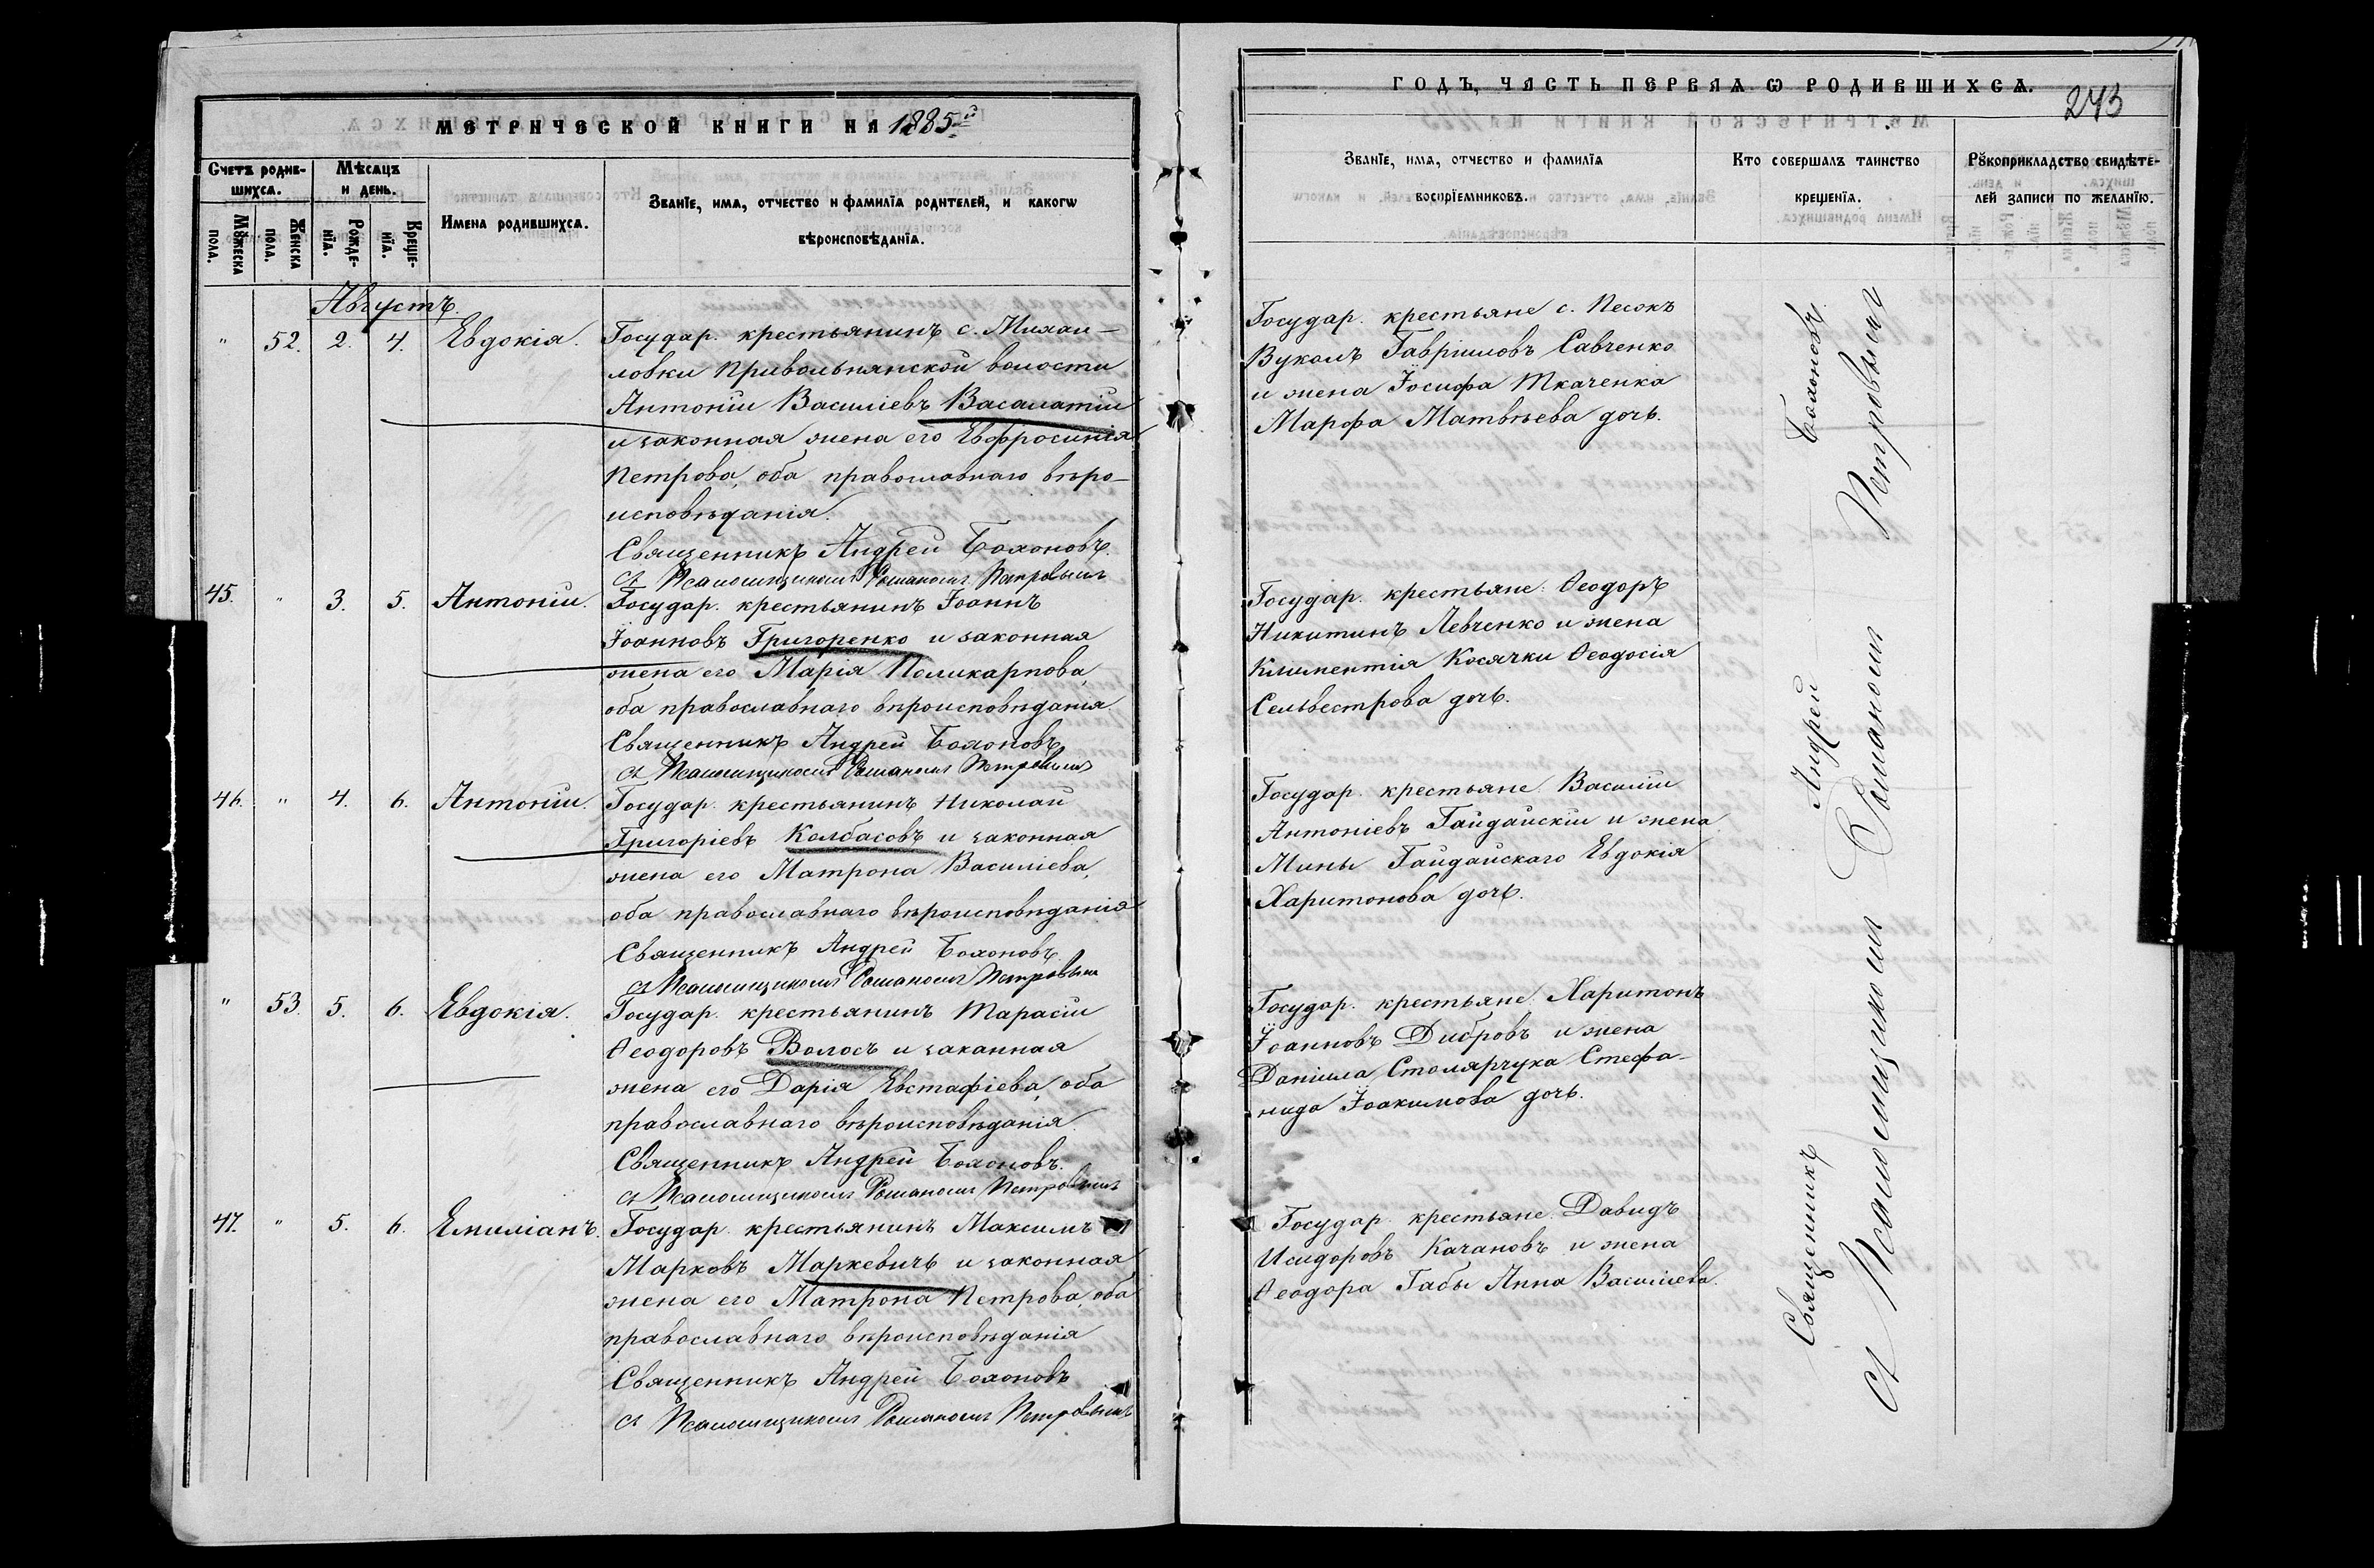 МЕТРИЧЕСКОЙ КНИГИ НА 1885й
Счетъ родив-
шихсѧ.
Мѣсѧцъ
и день.
Имена родившихсѧ.
Званїе, имѧ, отчество и фамилїа родителей, и какогѡ
вѣроисповѣданїа.
Мꙋжеска
пола.
Женска
пола.
Рожде-
нїѧ.
Креще-
нїѧ.
Августъ.
" 52. 2. 4. Евдокія.
Государ. крестьянинъ с. Михай-
ловки Привольнянской волости
Антоній Василіевъ Васалатій
и законная жена его Евфросинія
Петрова, оба православнаго вѣро-
исповѣданія.
Священникъ Андрей Бохоновъ.
съ Псаломщикомъ Романомъ Петровымъ
45. " 3. 5. Антоній.
Государ. крестьянинъ Іоаннъ
Іоанновъ Григоренко и законная
жена его Марія Поликарпова,
оба православнаго вѣроисповѣданія.
Священникъ Андрей Бохоновъ
съ Псаломщикомъ Романомъ Петровымъ
46. " 4. 6. Антоній.
Государ. крестьянинъ Николай
Григоріевъ Колбасовъ и законная
жена его Матрона Василіева,
оба православнаго вѣроисповѣданія
Священникъ Андрей Бохоновъ.
съ Псаломщикомъ Романомъ Петровым
" 53. 5. 6. Евдокія.
Государ. крестьянинъ Тарасій
Ѳеодоровъ Волосъ и заканная
жена его Дарія Евстафіева, оба
православнаго вѣроисповѣданія.
Священникъ Андрей Бохоновъ.
съ Псаломщикомъ Романомъ Петровымъ
47. " 5. 6. Емиліанъ.
Государ. крестьянинъ Максимъ
Марковъ Маркевичъ и законная
жена его Матрона Петрова, оба
православнаго вѣроисповѣданія
Священникъ Андрей Бохоновъ
съ Псаломщикомъ Романомъ Петровымъ
ГОДЪ, ЧАСТЬ ПЕРВАѦ Ѡ РОДИВШИХСѦ.
243
Званїе, имѧ, отчество и фамилїа
воспрїемниковъ.
Кто совершалъ таинство
крещенїѧ.
Рꙋкоприкладство свидѣте-
лей записи по желанїю.
Государ. крестьяне с. Песокъ
Вуколъ Гавріиловъ Савченко
и жена Іосифа Ткаченка
Марфа Матвѣева дочь.
Государ. крестьяне: Ѳеодоръ
Никитинъ Левченко и жена
Климентія Косячки Ѳеодосія
Сельвестрова дочь.
Государ. крестьяне Василій
Антоніевъ Гайдайскій и жена
Мины Гайдайскаго Евдокія
Харитонова дочь.
Государ. крестьяне: Харитонъ
Іоанновъ Дибровъ и жена
Даніила Столярчука Стефа-
нида Іоакимова дочь.
Государ. крестьяне: Давидъ
Исидоровъ Качановъ и жена
Ѳеодора Габы Анна Василіева.
Священникъ Андрей Бохоновъ
съ Псаломщикомъ Романомъ Петровымъ